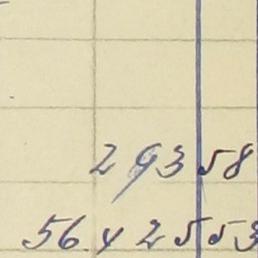 29358
56.42553